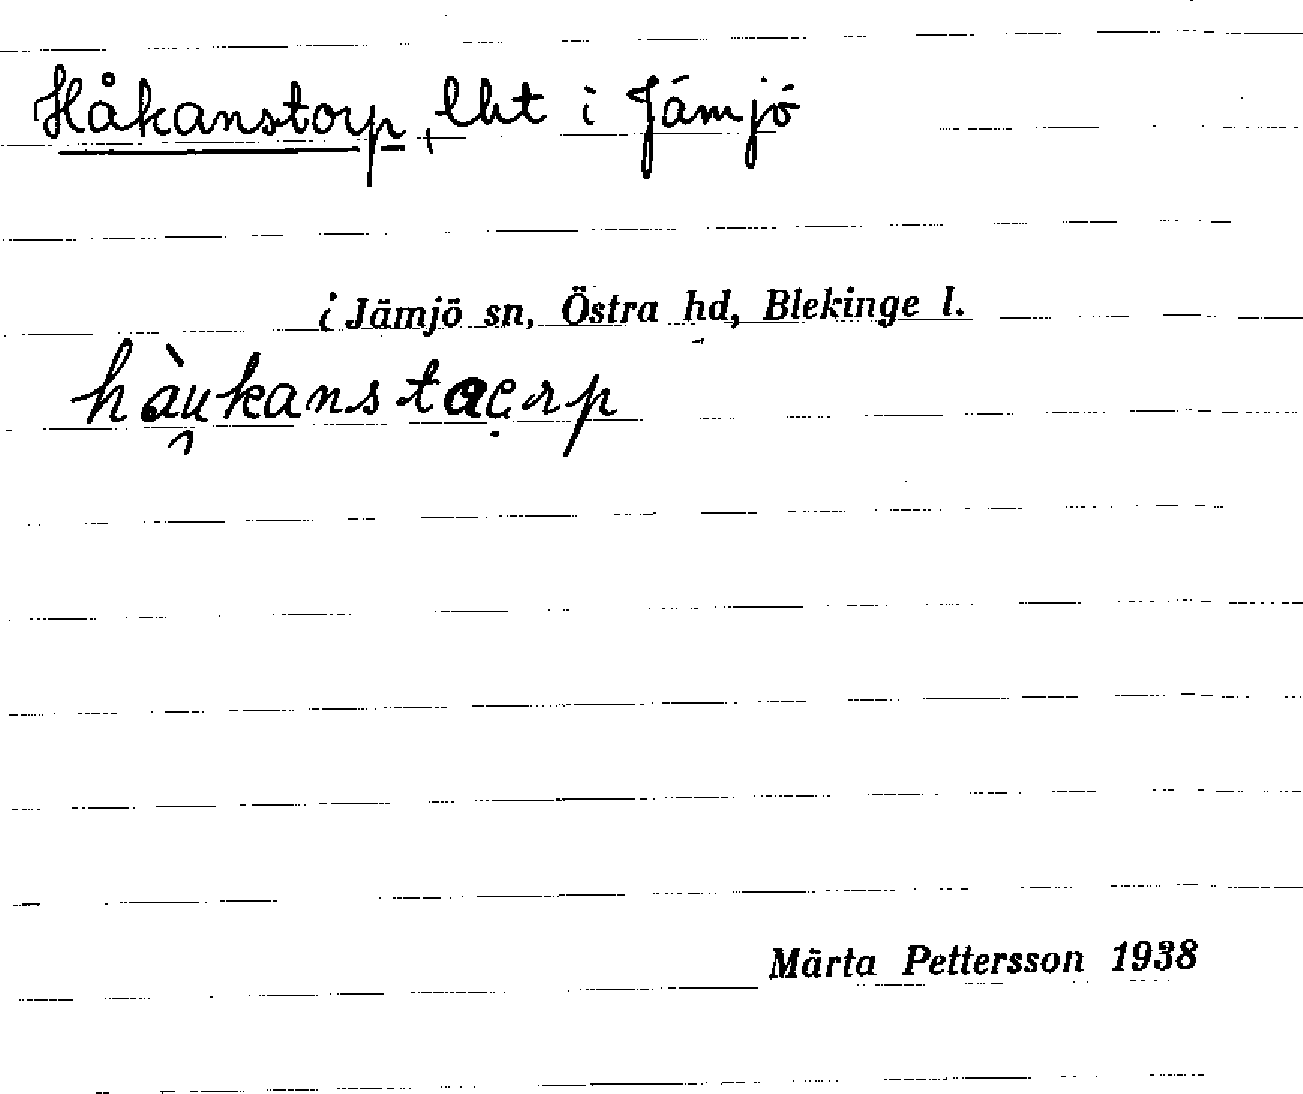 Håkanstorp, lht i Jämjö
i Jämjö sn, Östra hd, Blekinge l.
Märta Pettersson 1938